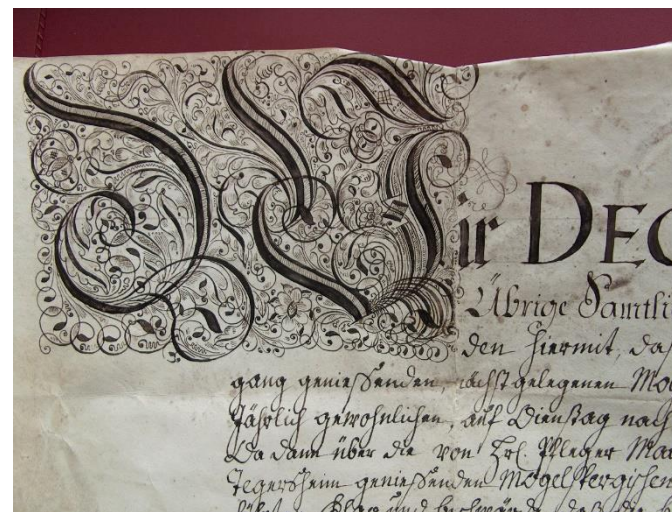 Wir DEC
Übrige Samtli
den hiermit, das
gang genießenden, nächst gelegenen Mo
Jährlich gewohnlichen, auf Dienstag nach
Da dann über die von Pfleger Mau
Tegersheim genießenden Mogelspergischen
Klag und beschwärde, daß die